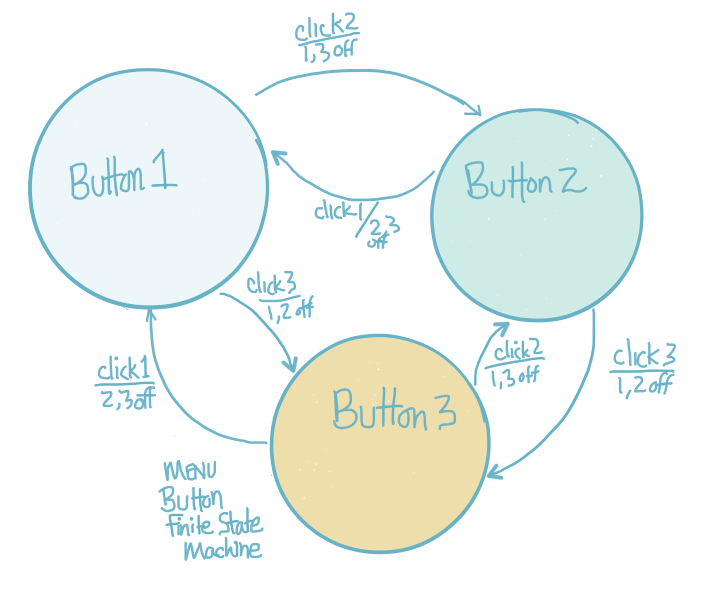 click2
1,3 off
Button 1
Button 2
click1/2,3
off
click3
1,2 off
click1
2,3 off
click2
1,3 off
click3
1,2 off
Button 3
MENU
Button
finite State
Machine